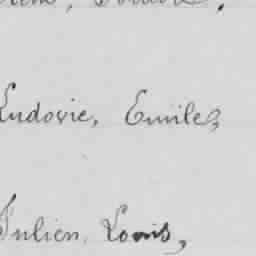 Ludovic, Emile,
Julien, Louis,